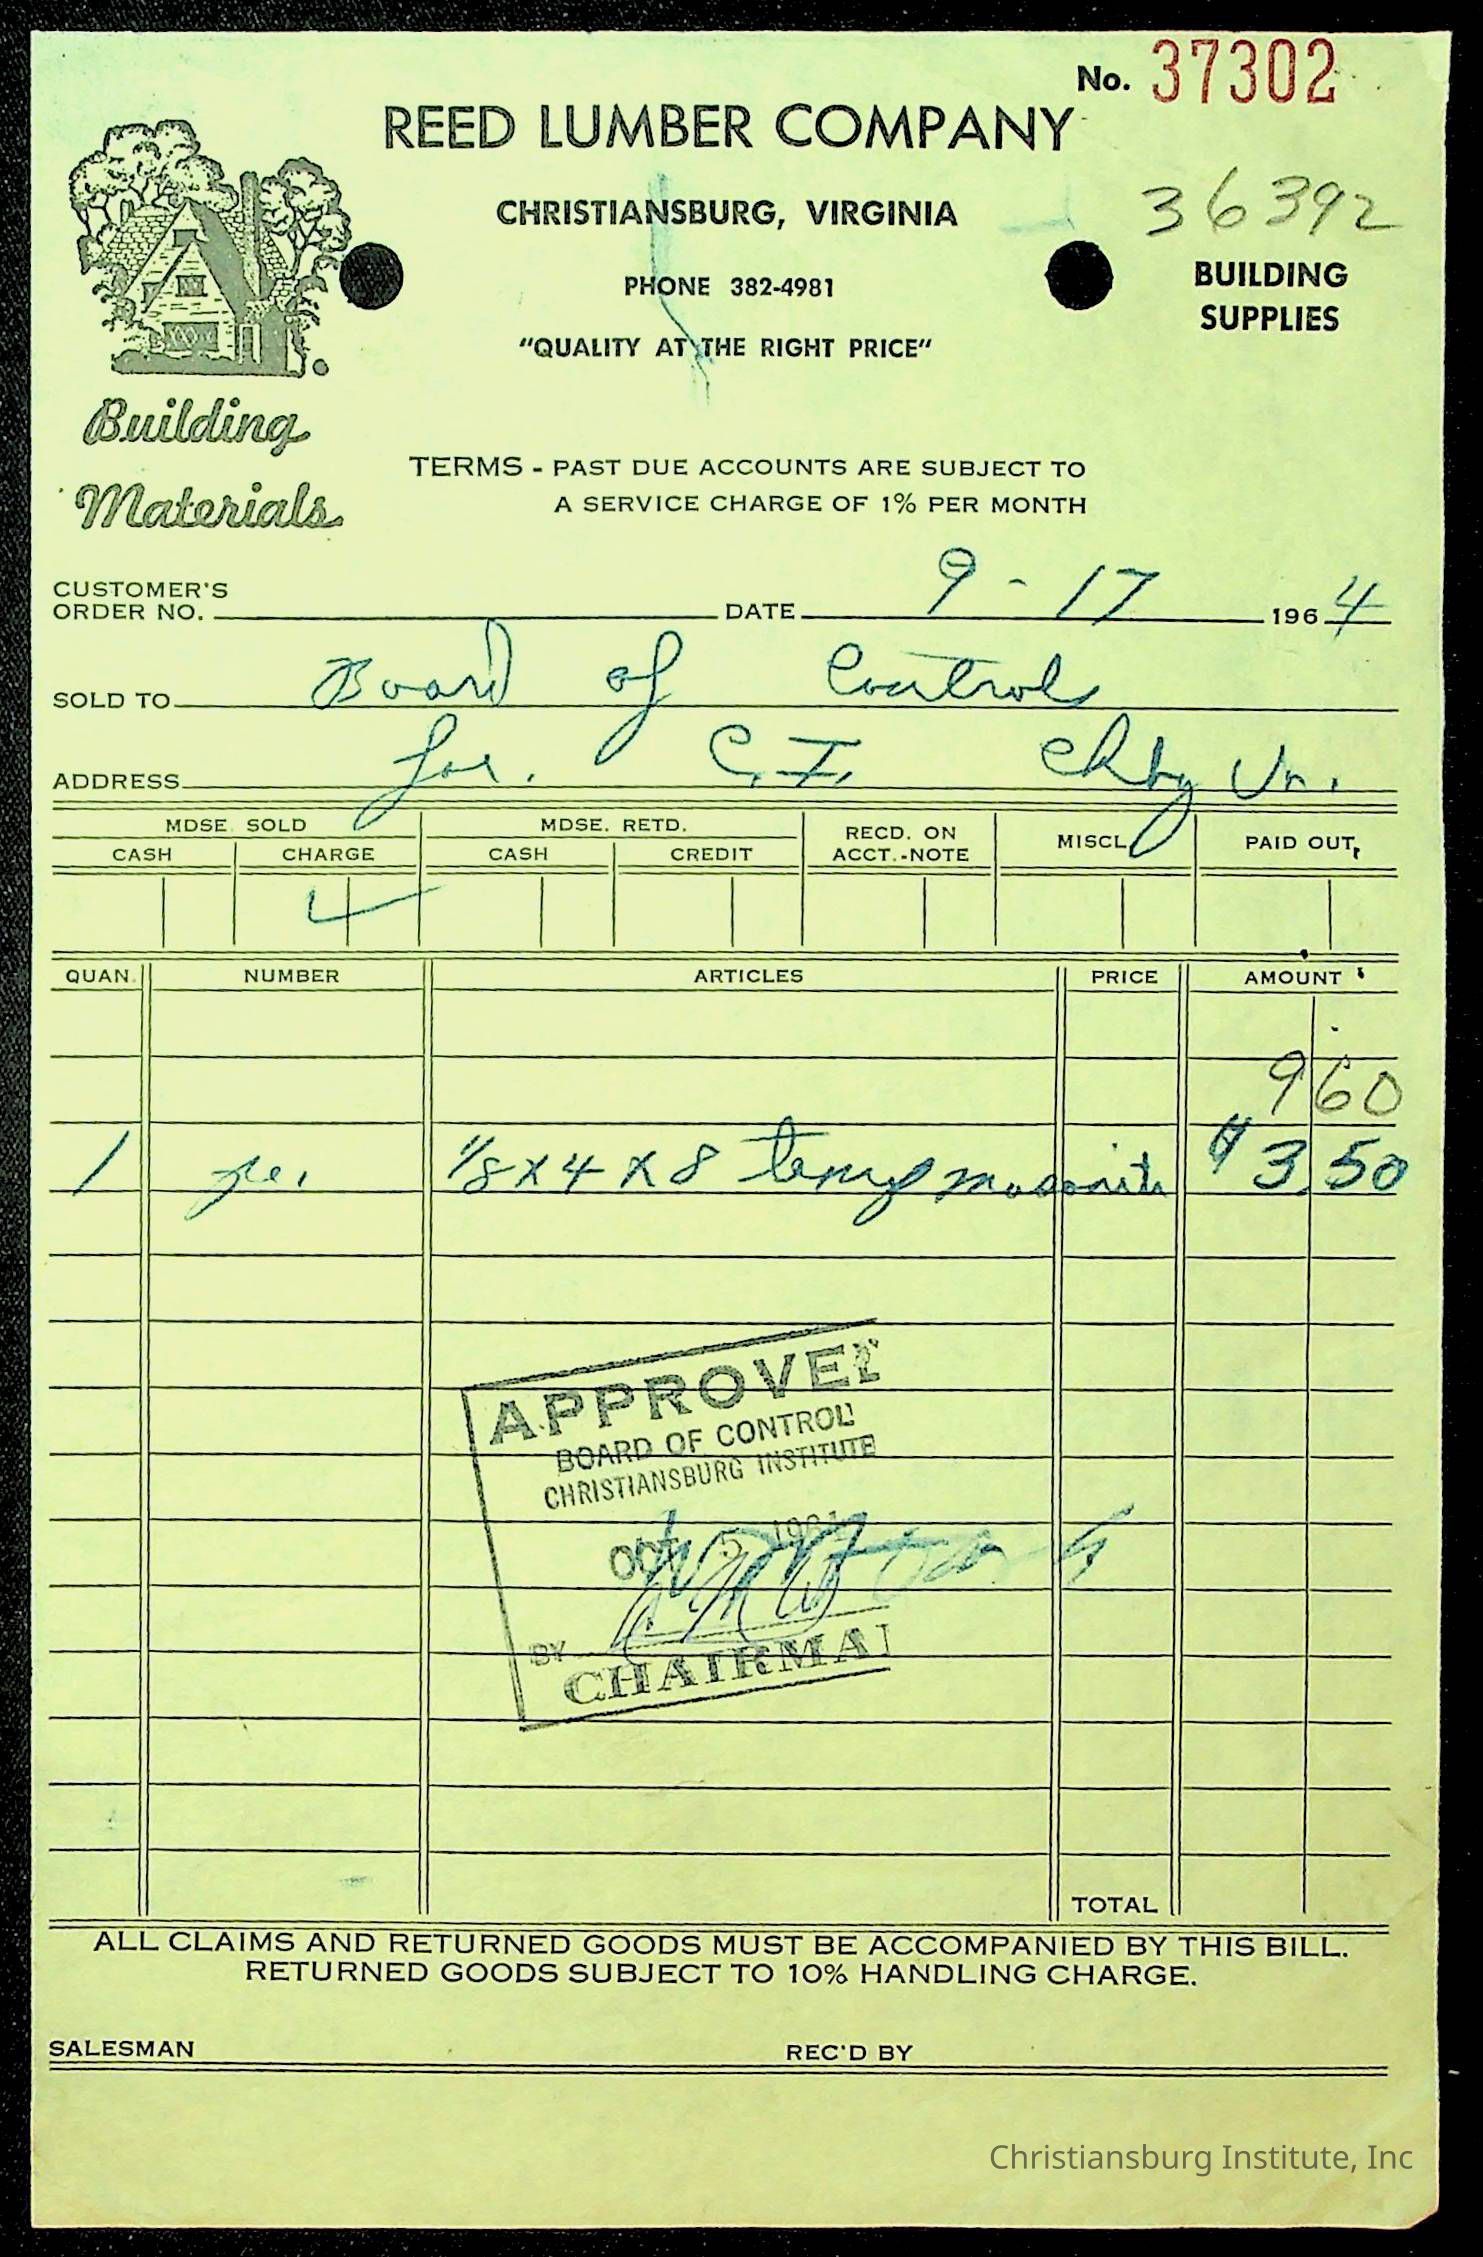 No. 37302
REED LUMBER COMPANY
36392
CHRISTIANSBURG, VIRGINIA
BUILDING
SUPPLIES
PHONE 382-4981
"QUALITY AT THE RIGHT PRICE"
Building
Materials
TERMS - PAST DUE ACCOUNTS ARE SUBJECT TO
A SERVICE CHARGE OF 1% PER MONTH
CUSTOMER'S
ORDER NO. DATE 9-17 1964
SOLD TO Board of Control
ADDRESS for. C.I. Chbg Va.
MDSE. SOLD MDSE. RETD. RECD. ON ACCT.-NOTE MISCL. PAID OUT
CASH CHARGE CASH CREDIT
QUAN. NUMBER ARTICLES PRICE AMOUNT
960
1 pc. 1/8 x 4 x 8 temp masonite $3.50
APPROVED
BOARD OF CONTROL
CHRISTIANSBURG INSTITUTE
OCT 5 1964
BY
CHAIRMAN
TOTAL
ALL CLAIMS AND RETURNED GOODS MUST BE ACCOMPANIED BY THIS BILL.
RETURNED GOODS SUBJECT TO 10% HANDLING CHARGE.
SALESMAN REC'D BY
Christiansburg Institute, Inc